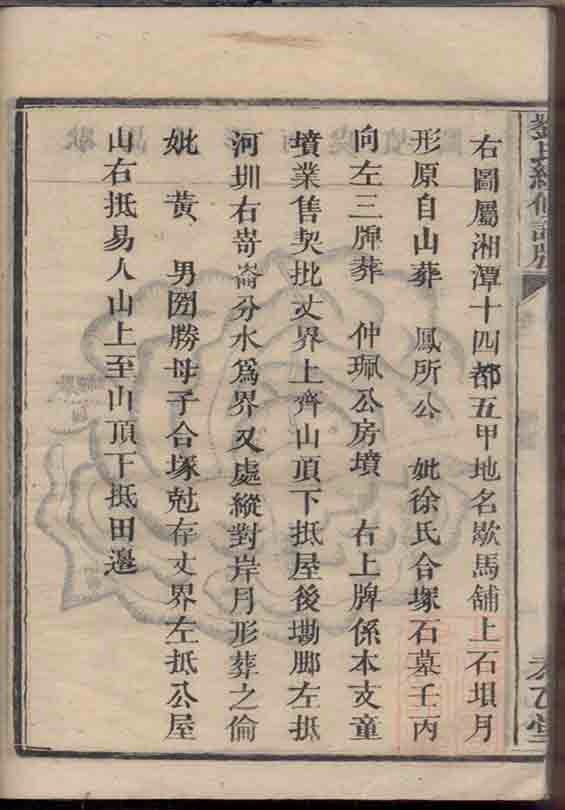 劉氏續修譜
右圖屬湘潭十四都五甲地名歇馬舖上石垻月
形原自山葬　鳳所公　妣徐氏合塚石墓壬丙
向左三牌葬　仲珮公房墳　右上牌係本支童
墳業售契批丈界上齊山頂下抵屋後墈脚左抵
河圳右嵜崙分水為界又處縱對岸月形葬之倫
妣　黄　男圀勝母子合塚尅存丈界左抵公屋
山右抵易人山上至山頂下抵田邊